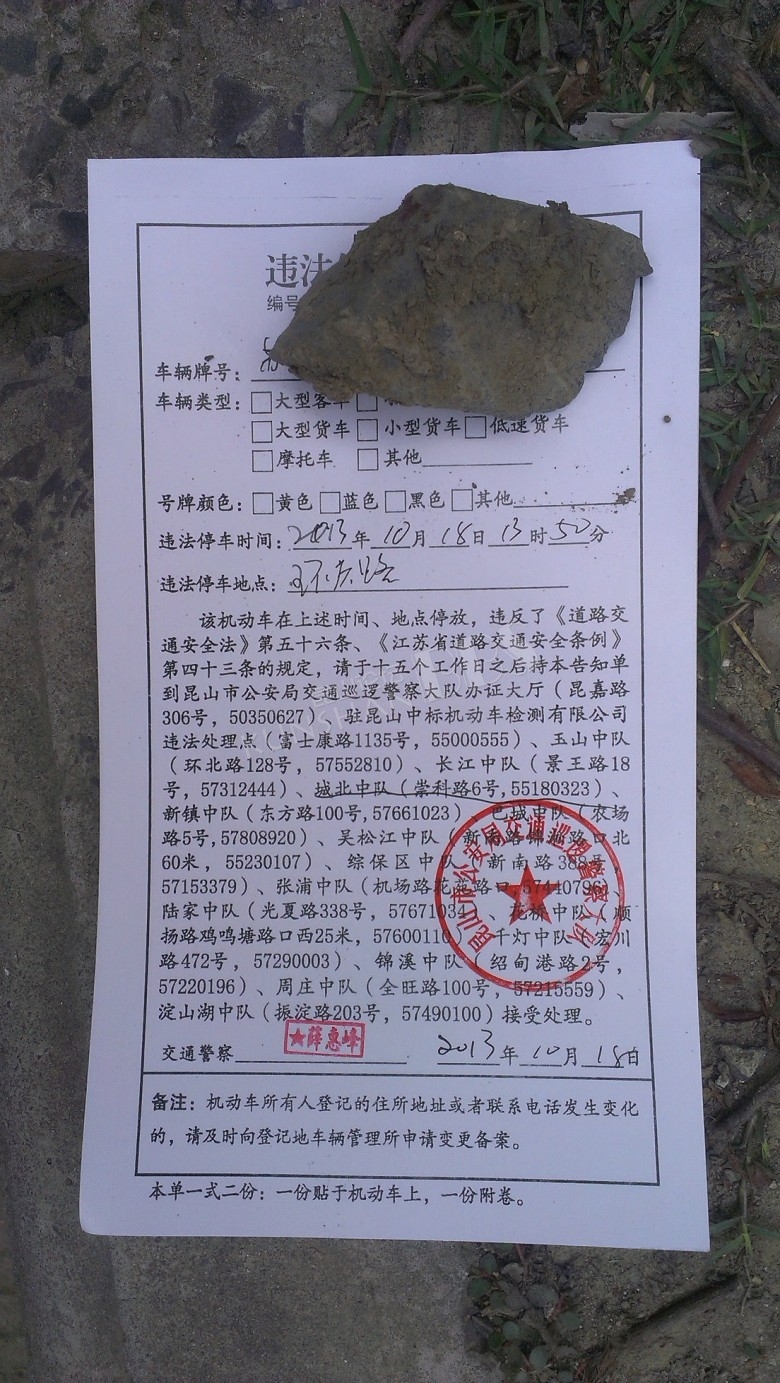 违法
编号
车辆牌号：
车辆类型：□大型客车□
□大型货车 □小型货车□低速货车
□摩托车 □其他
号牌颜色：□黄色□蓝色□黑色□其他
违法停车时间：2013年10月18日13时50分
违法停车地点：
该机动车在上述时间、地点停放，违反了《道路交
通安全法》第五十六条、《江苏省道路交通安全条例》
第四十三条的规定，请于十五个工作日之后持本告知单
到昆山市公安局交通巡逻警察大队办证大厅（昆嘉路
306号，50350627）、驻昆山中标机动车检测有限公司
违法处理点（富士康路1135号，55000555）、玉山中队
（环北路128号，57552810）、长江中队（景王路18
号，57312444）、城北中队（崇科路6号，55180323）、
新镇中队（东方路100号，57661023）、巴城中队（农场
路5号，57808920）、吴淞江中队（新南路锦淞路口北
60米，55230107）、综保区中队（新南路388号，
57153379）、张浦中队（机场路花苑路口，57440796）、
陆家中队（光夏路338号，57671034）、花桥中队（顺
扬路鸡鸣塘路口西25米，57600110）、千灯中队（宏川
路472号，57290003）、锦溪中队（绍甸港路2号，
57220196）、周庄中队（全旺路100号，57215559）、
淀山湖中队（振淀路203号，57490100）接受处理。
昆山市公安局交通巡逻警察大队
交通警察 薛惠峰 2013年10月18日
备注：机动车所有人登记的住所地址或者联系电话发生变化
的，请及时向登记地车辆管理所申请变更备案。
本单一式二份：一份贴于机动车上，一份附卷。